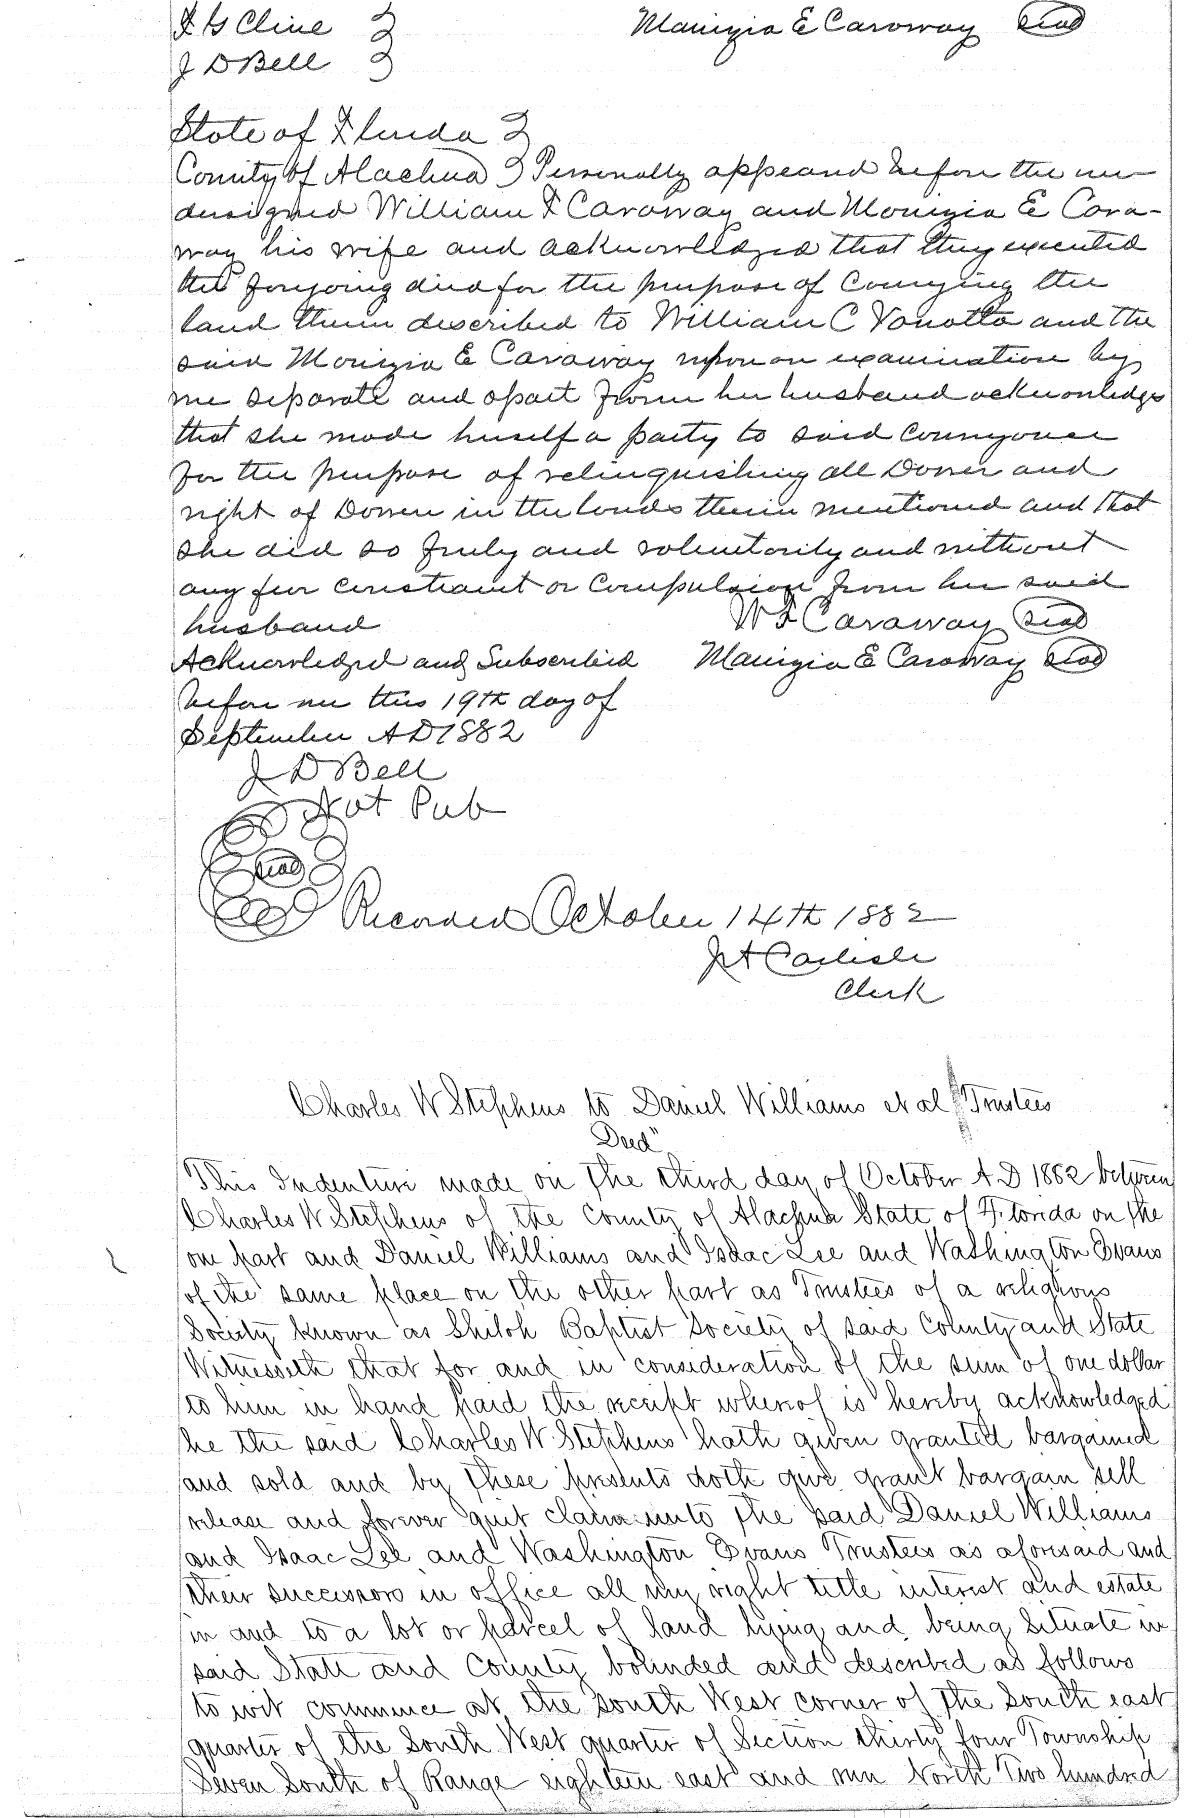 F G Cline } Manizia E Caroway Seal
J D Bell }
State of Florida }
County of Alachua } Personally appeard before the un-
dersigned William F Caraway and Manizia E Cara-
way his wife and acknowledged that they executed
the foregoing deed for the purpose of conveying the
land therein described to William C Vanatta and the
said Manizia E Caraway upon an examination by
me separate and apart from her husband acknowledge
that she made herself a party to said conveyance
for the purpose of relinquishing all Dower and
right of Dower in the lands therein mentioned and that
she did so freely and voluntarily and without
any fear constraint or compulsion from her said
husband W F Caraway Seal
Acknowledged and Subscribed Manizia E Caraway Seal
before me this 19th day of
September A D 1882
J D Bell
Not Pub
Seal
Recorded October 14th 1882
J A Carlisle
Clerk
Charles W Stephens to Daniel Williams et al Trustees
Deed"
This Indenture made on the third day of October A.D 1882 between
Charles W Stephens of the County of Alachua State of Florida on the
one part and Daniel Williams and Isaac Lee and Washington Evans
of the same place on the other part as Trustees of a religious
Society known as Shiloh Baptist Society of said County and State
Witnesseth that for and in consideration of the sum of one dollar
to him in hand paid the receipt whereof is hereby acknowledged
he the said Charles W Stephens hath given granted bargained
and sold and by these presents doth give grant bargain sell
release and forever quit claim unto the said Daniel Williams
and Isaac Lee and Washington Evans Trustees as aforesaid and
their successors in office all my right title interest and estate
in and to a lot or parcel of land lying and being situate in
said State and County bounded and described as follows
to wit commence at the South West corner of the South east
quarter of the South West quarter of Section thirty four Township
Seven South of Range eighteen east and run North Two hundred